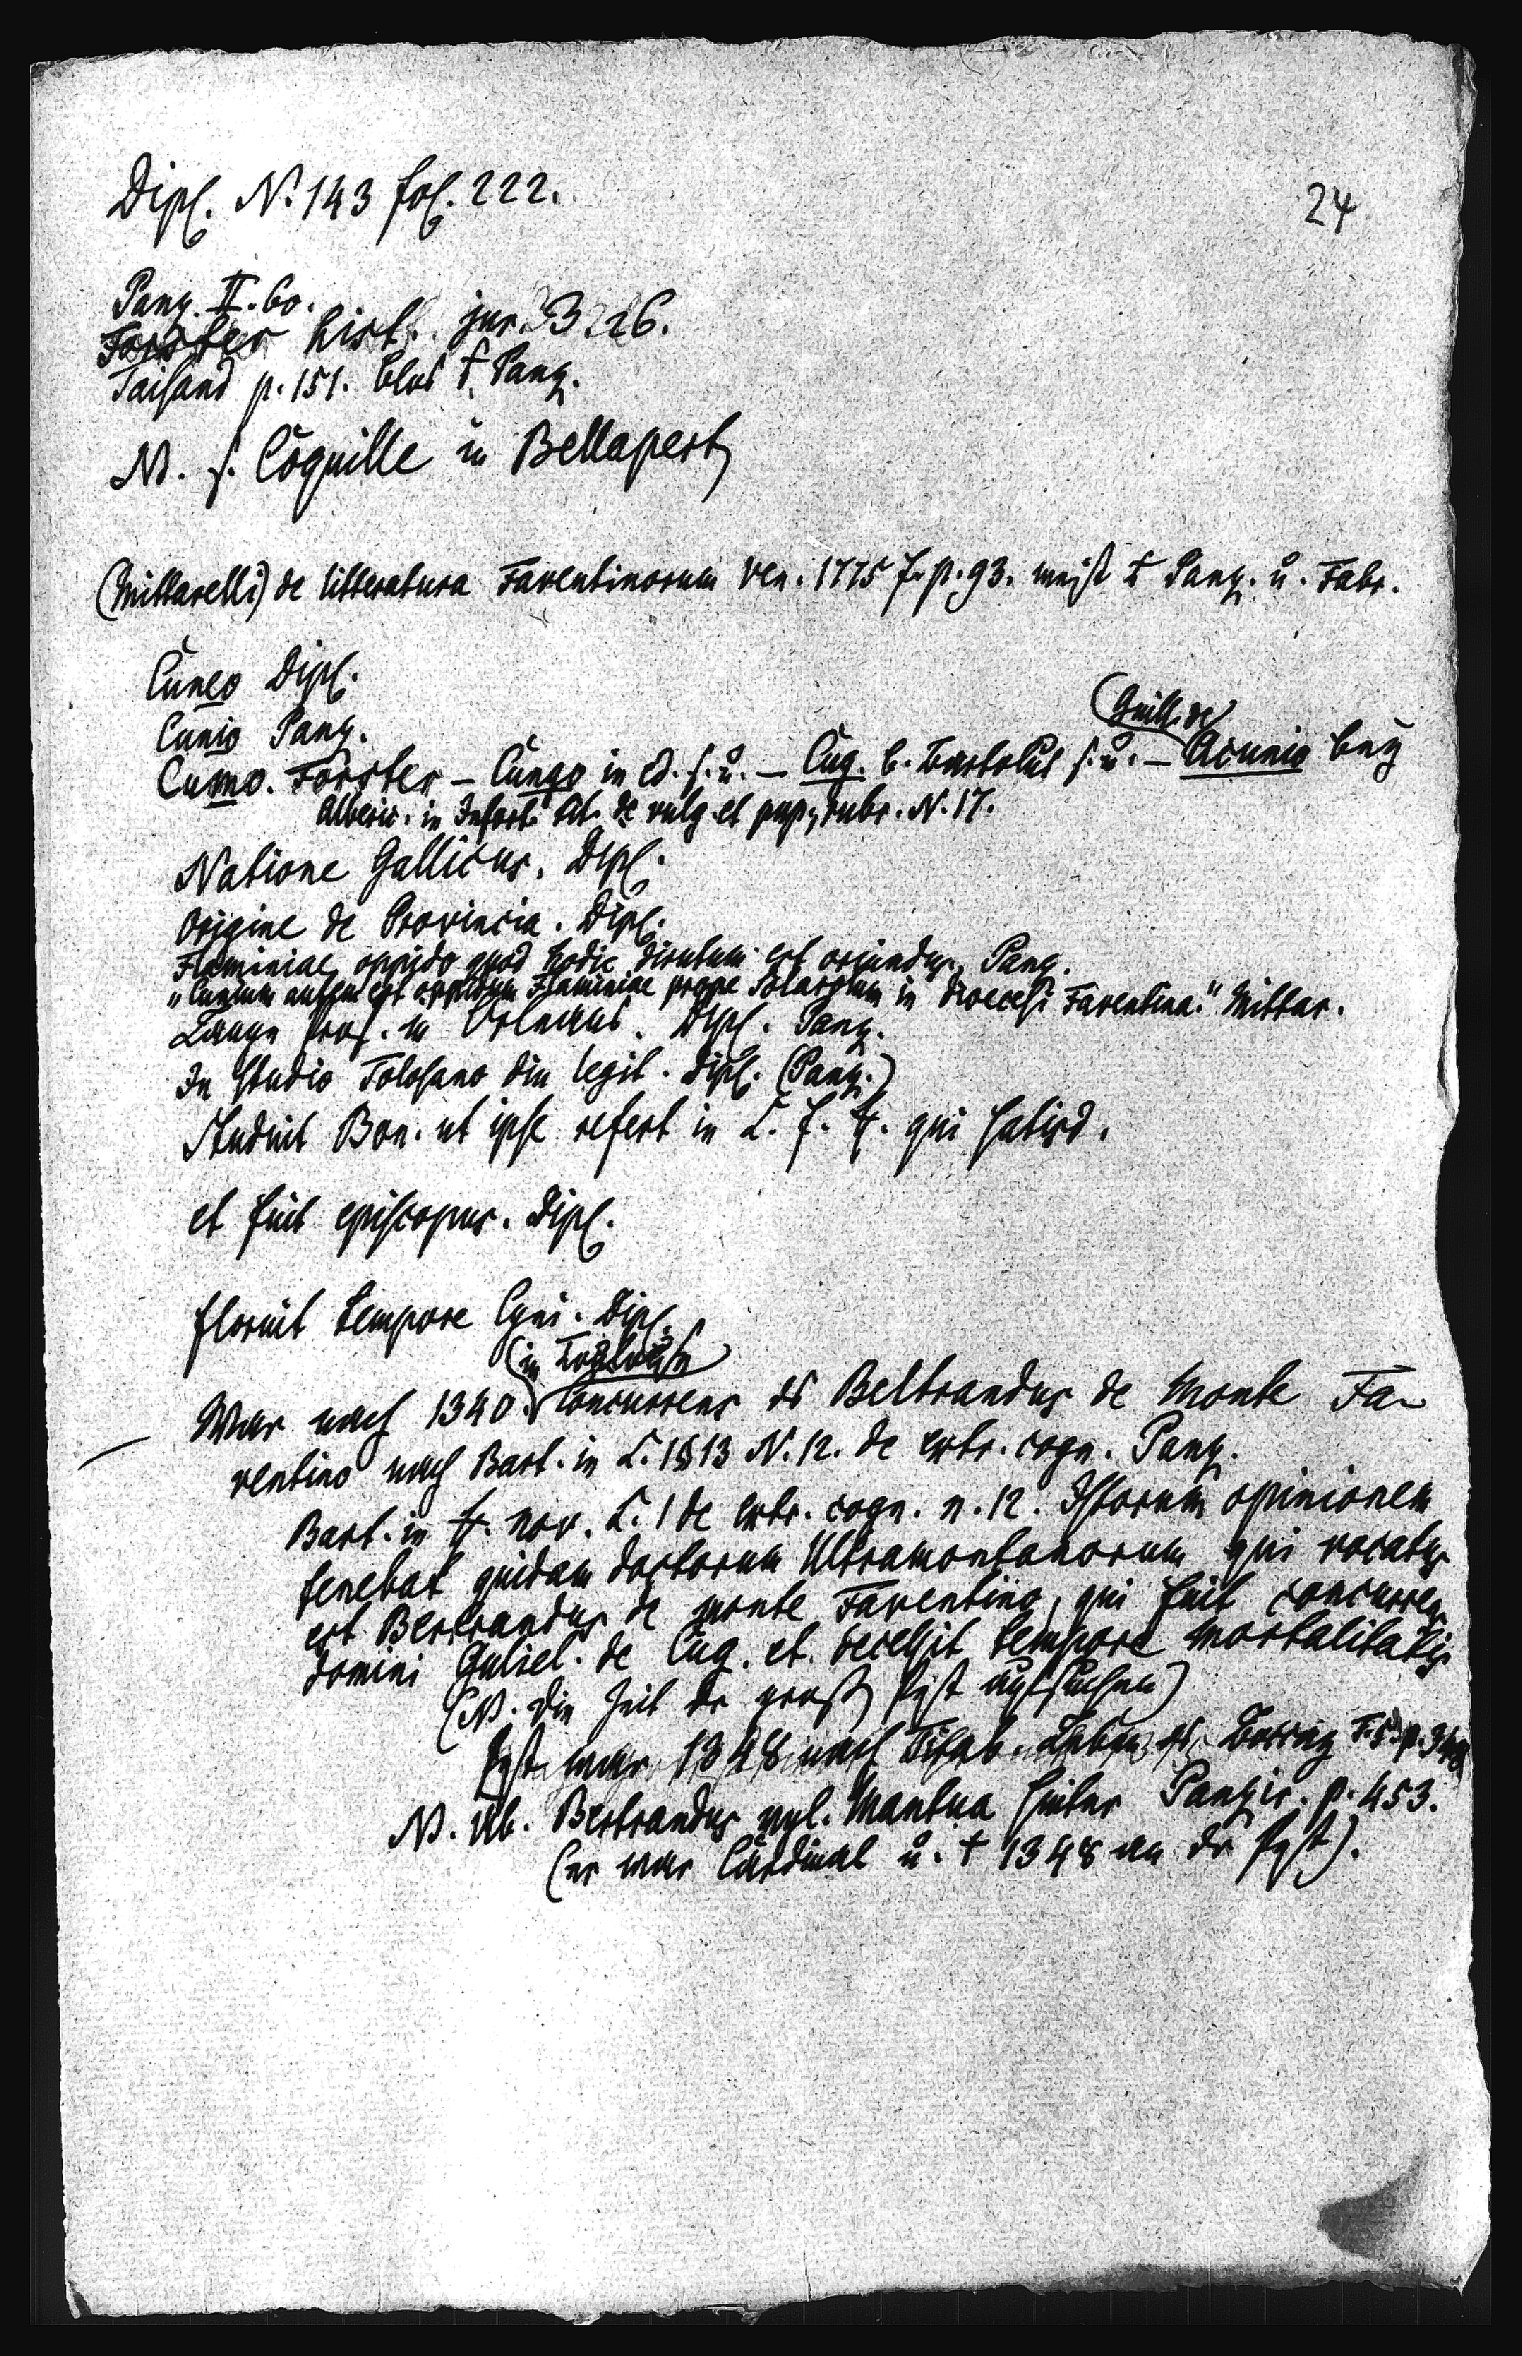 Dipl. N. 143 fol. 222.
24
Panz. II. 60.
Forster hist. jur. 3 226.
Taisand p. 151. blos Panz.
NB. s. Coquille in Bellapert
(Mittarelli) de litteratura Faventinorum Ven. 1775 f. p. 93. meist Panz. u. Fabr.
Cuneo Dipl.
Cunio Panz.
(Guill. de)
Cumo. Forster – Cungo in s. u. – Cug. b. Bartolus s. u. – Acunio bey
Alberic. in Infort. tit. de vulg. et pup. rubr. N. 17.
Natione Gallicus. Dipl.
Origine de Provincia. Dipl.
Flaminiae oppido quod hodie dirutum est oriundus. Panz.
„Cunium autem est oppidum Flaminiae prope in dioecesi Faventina." Mittar.
Lange Prof. in Orleans. Dipl. Panz.
In Studio Tolosano diu legit. Dipl. (Panz.)
Studuit Bon. ut ipse refert in L. f. ff. qui satisd.
et fuit episcopus. Dipl.
floruit tempore Cyni. Dipl.
(in Toulouse)
War nach 1340. Concurrens des Beltrandus de Monte Fa-
ventino nach Bart. in L. 1 § 13 N. 12. de extr. cogn. Panz.
Bart. in ff. nov. L. 1 de extr. cogn. n. 12. Istorum opinionem
tenebat quidam doctorum Ultramontanorum qui vocatus
est Bertrandus de monte Faventino, qui fuit concurrens
domini Guliel. de Cug. et decessit tempore mortalitatis
(NB. die Zeit der großen Pest aufsuchen)
Pest war 1348 nach Leben p. 3
NB. Üb. Bertrandus vgl. Mantua hinter Panzir. p. 453.
(er war Cardinal u. † 1348 an der Pest).